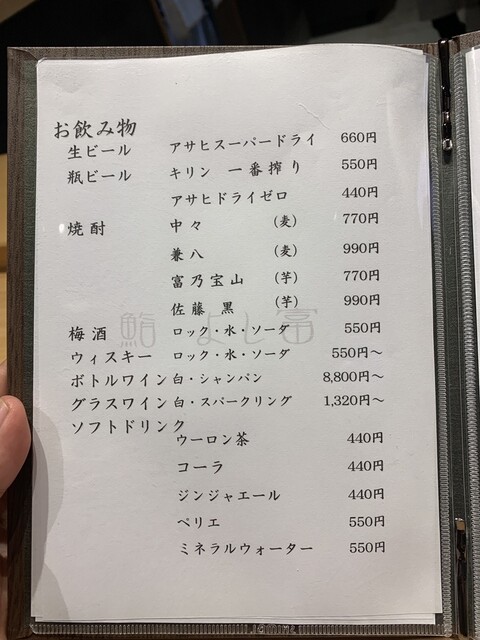 お飲み物
生ビール アサヒスーパードライ 660円
瓶ビール キリン 一番搾り 550円
アサヒドライゼロ 440円
焼酎 中々 (麦) 770円
兼八 (麦) 990円
富乃宝山 (芋) 770円
佐藤 黒 (芋) 990円
鮨 よし富
梅酒 ロック・水・ソーダ 550円
ウィスキー ロック・水・ソーダ 550円～
ボトルワイン 白・シャンパン 8,800円～
グラスワイン 白・スパークリング 1,320円～
ソフトドリンク
ウーロン茶 440円
コーラ 440円
ジンジャエール 440円
ペリエ 550円
ミネラルウォーター 550円